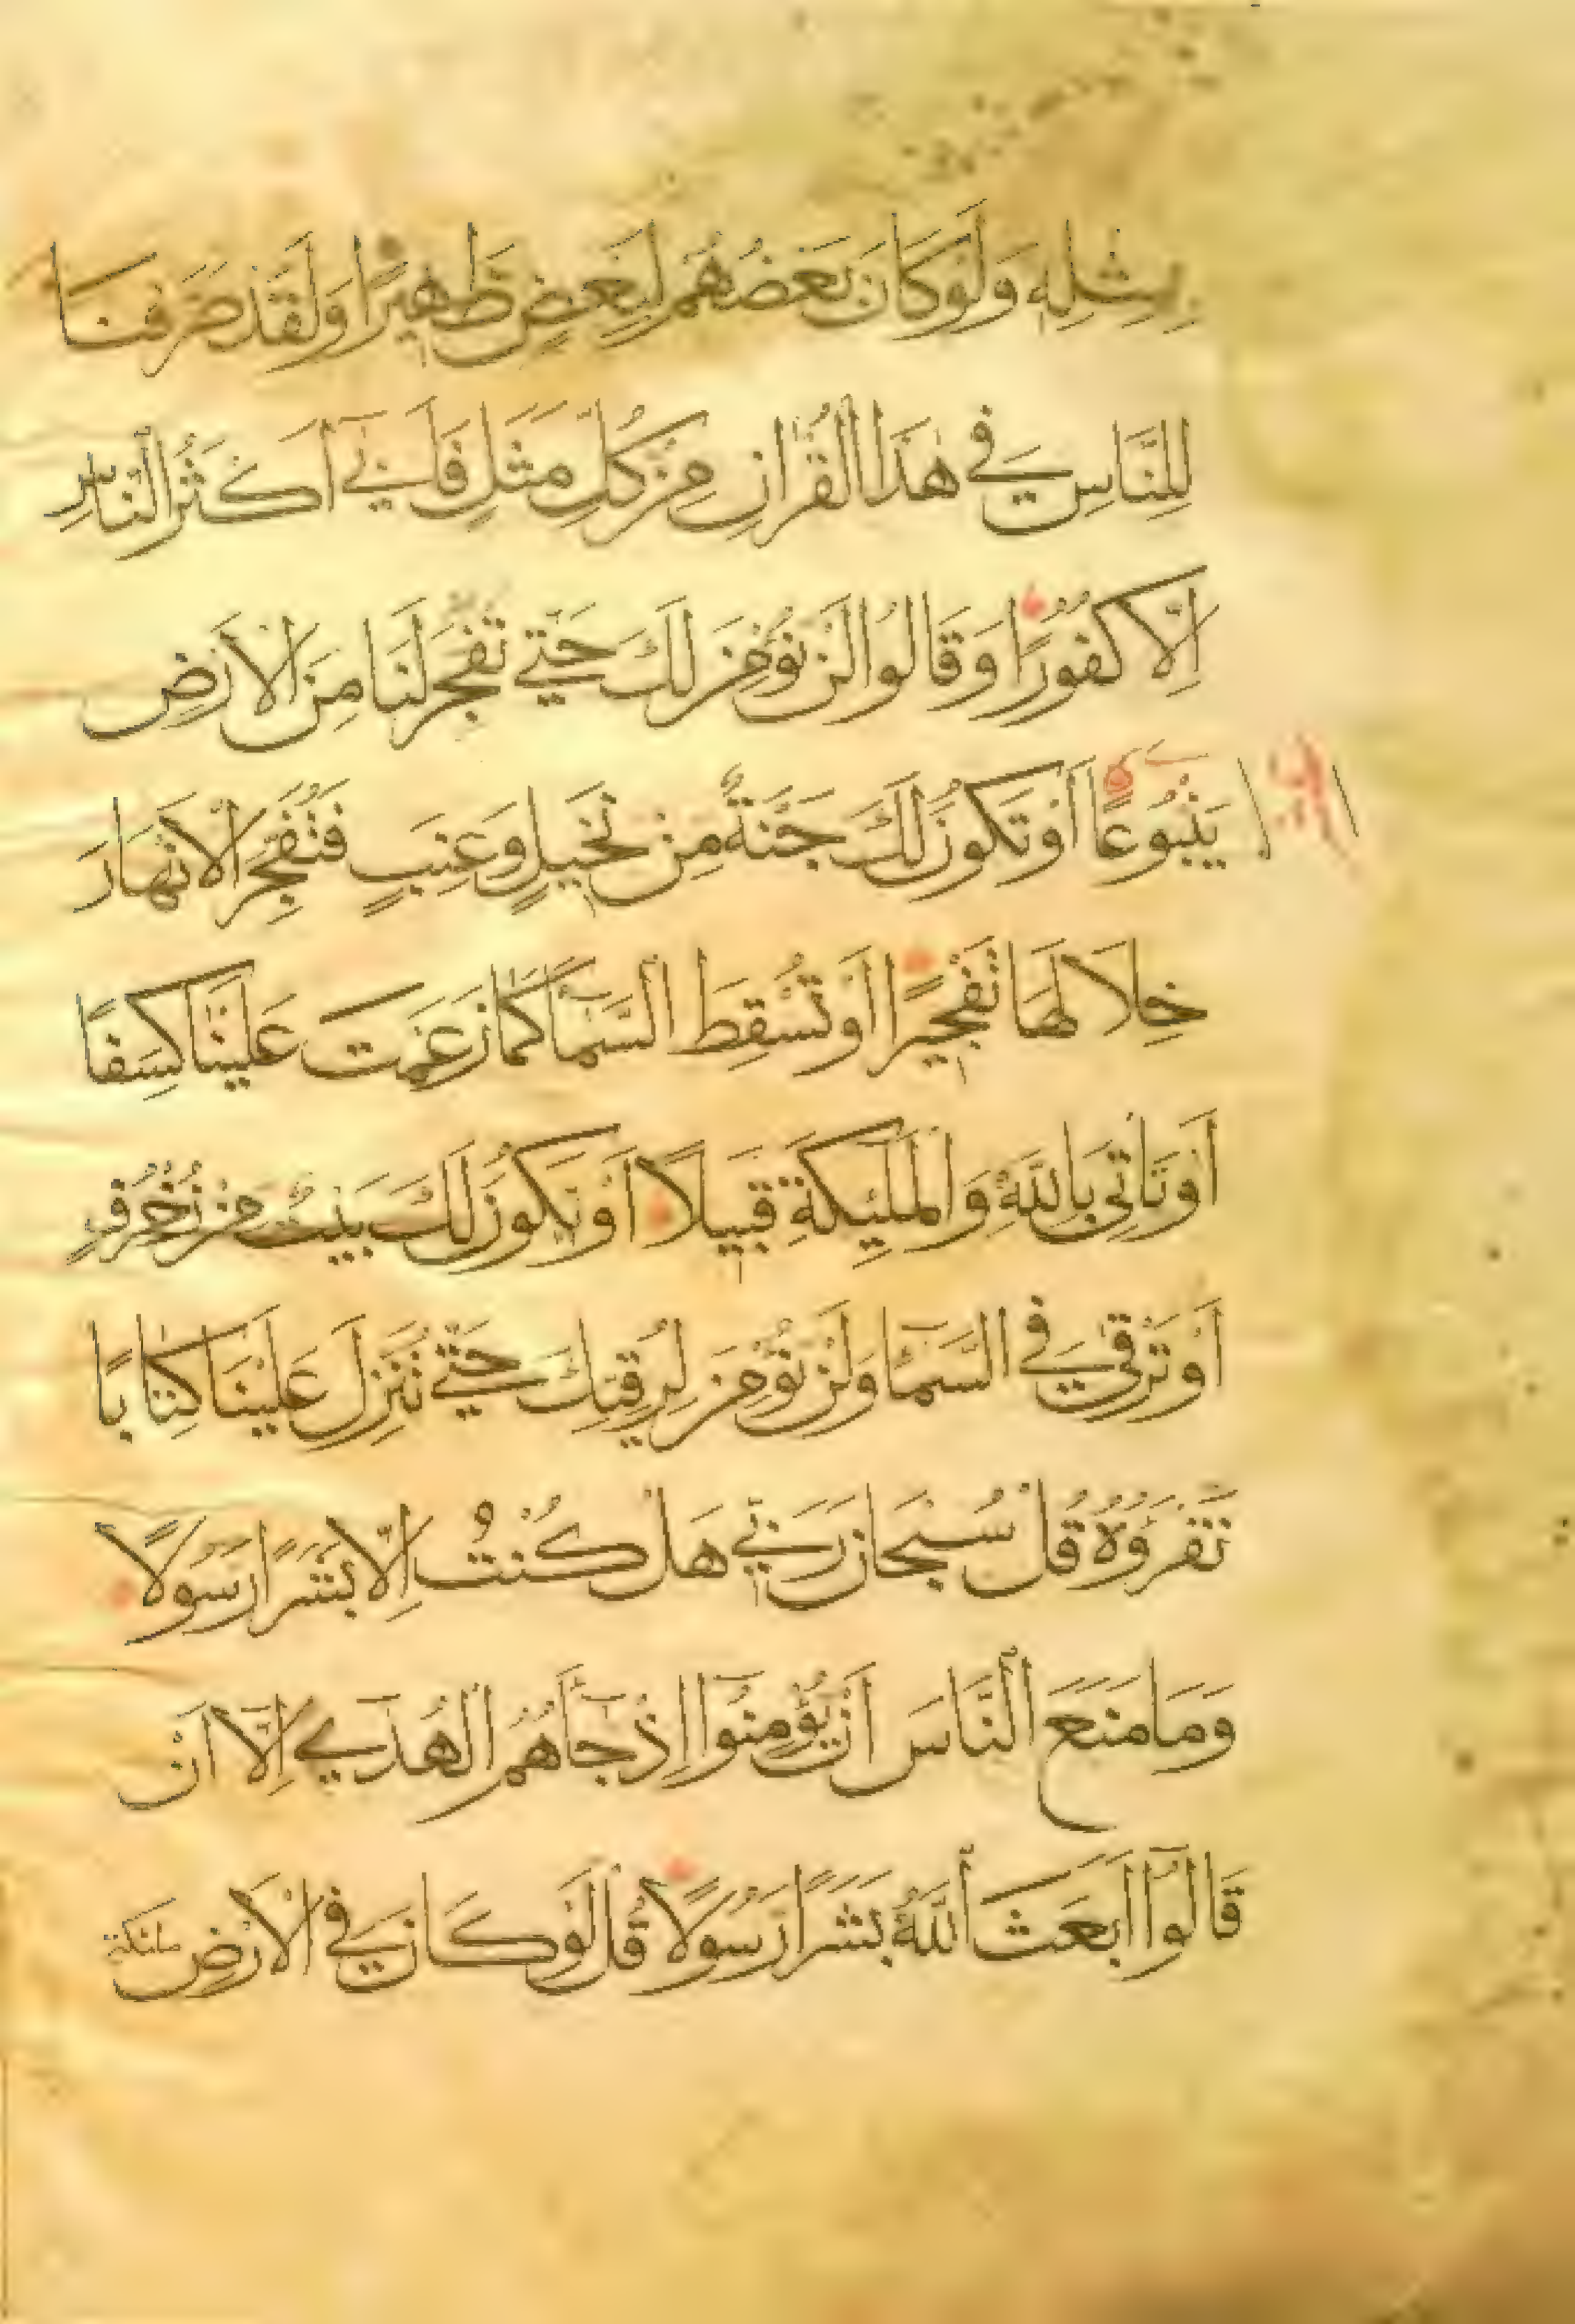 بِمِثْلِهِ وَلَوْ كَانَ بَعْضُهُمْ لِبَعْضٍ ظَهِيرًا وَلَقَدْ صَرَّفْنَا
لِلنَّاسِ فِي هٰذَا الْقُرْاٰنِ مِنْ كُلِّ مَثَلٍ فَاَبٰي اَكْثَرُ النَّاسِ
اِلَّا كُفُورًا وَقَالُوا لَنْ نُؤْمِنَ لَكَ حَتّٰي تَفْجُرَ لَنَا مِنَ الْاَرْضِ
يَنْبُوعًا اَوْ تَكُونَ لَكَ جَنَّةٌ مِنْ نَخِيلٍ وَعِنَبٍ فَتُفَجِّرَ الْاَنْهَارَ
خِلَالَهَا تَفْجِيرًا اَوْ تُسْقِطَ السَّمَآ كَمَا زَعَمْتَ عَلَيْنَا كِسَفًا
اَوْ تَاْتِيَ بِاللّٰهِ وَالْمَلٰٓئِكَةِ قَبِيلًا اَوْ يَكُونَ لَكَ بَيْتٌ مِنْ زُخْرُفٍ
اَوْ تَرْقٰي فِي السَّمَآ وَلَنْ نُؤْمِنَ لِرُقِيِّكَ حَتّٰي تُنَزِّلَ عَلَيْنَا كِتَابًا
نَقْرَؤُهُ قُلْ سُبْحَانَ رَبِّي هَلْ كُنْتُ اِلَّا بَشَرًا رَسُولًا
وَمَا مَنَعَ النَّاسَ اَنْ يُؤْمِنُوٓا اِذْ جَآهُمُ الْهُدٰٓي اِلَّا اَنْ
قَالُوٓا اَبَعَثَ اللّٰهُ بَشَرًا رَسُولًا قُلْ لَوْ كَانَ فِي الْاَرْضِ
ملئكة